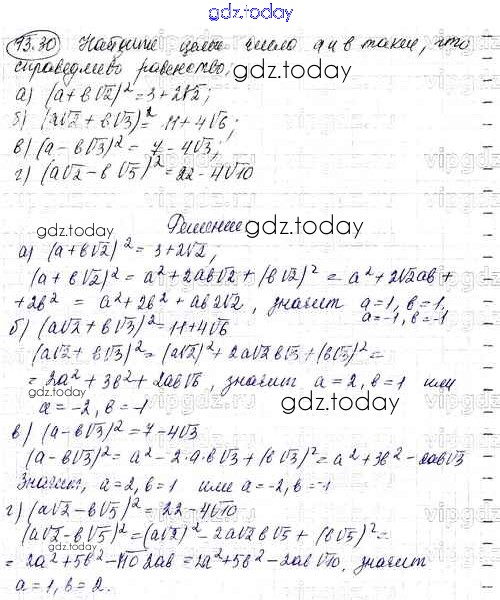 gdz.today
13.30 Найдите целые числа a и b такие, что
справедливо равенство:
gdz.today
а) (a+b√2)²=3+2√2;
б) (a√2+b√3)²=11+4√6;
в) (a-b√3)²=7-4√3;
г) (a√2-b√5)²=22-4√10
Решение
gdz.today
а) (a+b√2)²=3+2√2,
(a+b√2)²=a²+2ab√2+(b√2)²=a²+2√2ab+
+2b²=a²+2b²+ab2√2, значит a=1, b=1,
a=-1, b=-1
б) (a√2+b√3)²=11+4√6
(a√2+b√3)²=(a√2)²+2a√2b√3+(b√3)²=
=2a²+3b²+2ab√6, значит a=2, b=1 или
a=-2, b=-1
gdz.today
gdz.today
в) (a-b√3)²=7-4√3
(a-b√3)²=a²-2·a·b√3+(b√3)²=a²+3b²-2ab√3
Значит, a=2, b=1 или a=-2, b=-1
г) (a√2-b√5)²=22-4√10
(a√2-b√5)²=(a√2)²-2a√2b√5+(b√5)²=
=2a²+5b²-√10 2ab=2a²+5b²-2ab√10, значит
a=1, b=2.
gdz.today
gdz.today